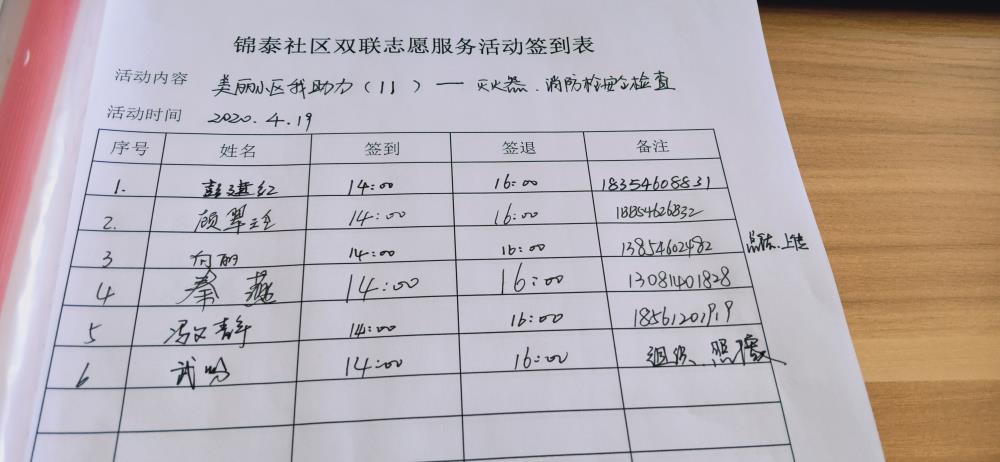 锦泰社区双联志愿服务活动签到表
活动内容 美丽小区我助力（11）— 灭火器、消防栓安全检查
活动时间 2020.4.19
序号 姓名 签到 签退 备注
1. 彭进红 14:00 16:00 18354608831
2. 顾翠玲 14:00 16:00 18854626832
3 向丽 14:00 16:00 13854602482 上传
4 秦燕 14:00 16:00 13081401828
5 冯文静 14:00 16:00 18561201919
6 武 14:00 16:00 组织、照